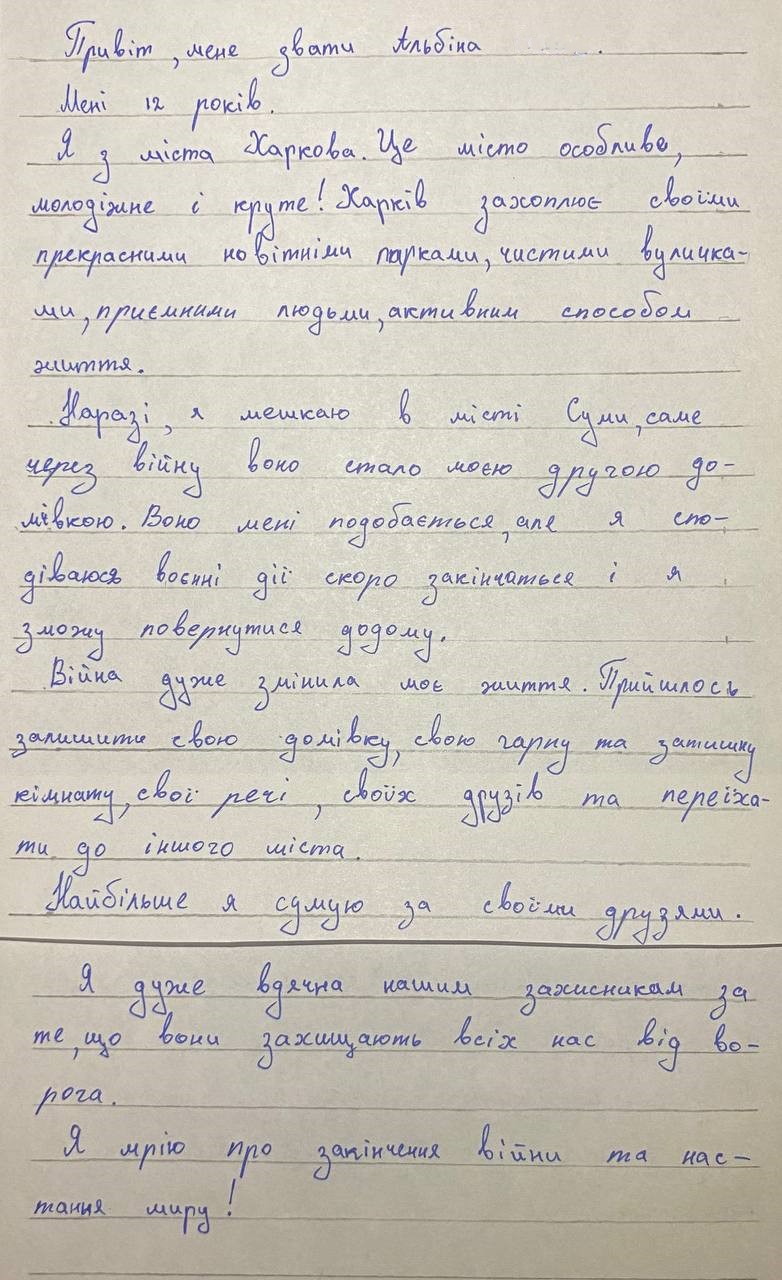 Привіт, мене звати Альбіна .
Мені 12 років.
Я з міста Харкова. Це місто особливе,
молодіжне і круте! Харків захоплює своїми
прекрасними новітніми парками, чистими вуличка-
ми, приємними людьми, активним способом
життя.
Наразі, я мешкаю в місті Суми, саме
через війну воно стало моєю другою до-
мівкою. Воно мені подобається, але я спо-
діваюся воєнні дії скоро закінчаться і я
зможу повернутися додому.
Війна дуже змінила моє життя. Прийшлось
залишити свою домівку, свою гарну та затишну
кімнату, свої речі, своїх друзів та переїха-
ти до іншого міста.
Найбільше я сумую за своїми друзями.
Я дуже вдячна нашим захисникам за
те, що вони захищають всіх нас від во-
рога.
Я мрію про закінчення війни та нас-
тання миру!